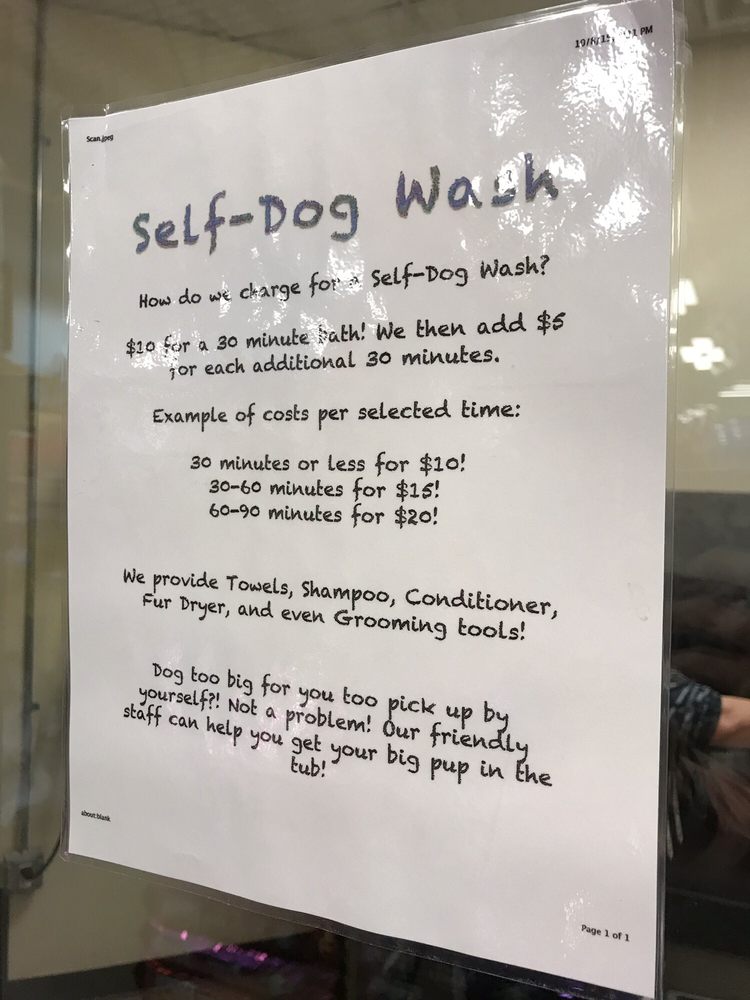 Scan.jpeg
PM
Self-Dog Wash
How do we charge for a Self-Dog Wash?
$10 for a 30 minute bath! We then add $5
for each additional 30 minutes.
Example of costs per selected time:
30 minutes or less for $10!
30-60 minutes for $15!
60-90 minutes for $20!
We provide Towels, Shampoo, Conditioner,
Fur Dryer, and even Grooming tools!
Dog too big for you too pick up by
yourself?! Not a problem! Our friendly
staff can help you get your big pup in the
tub!
about:blank
Page 1 of 1